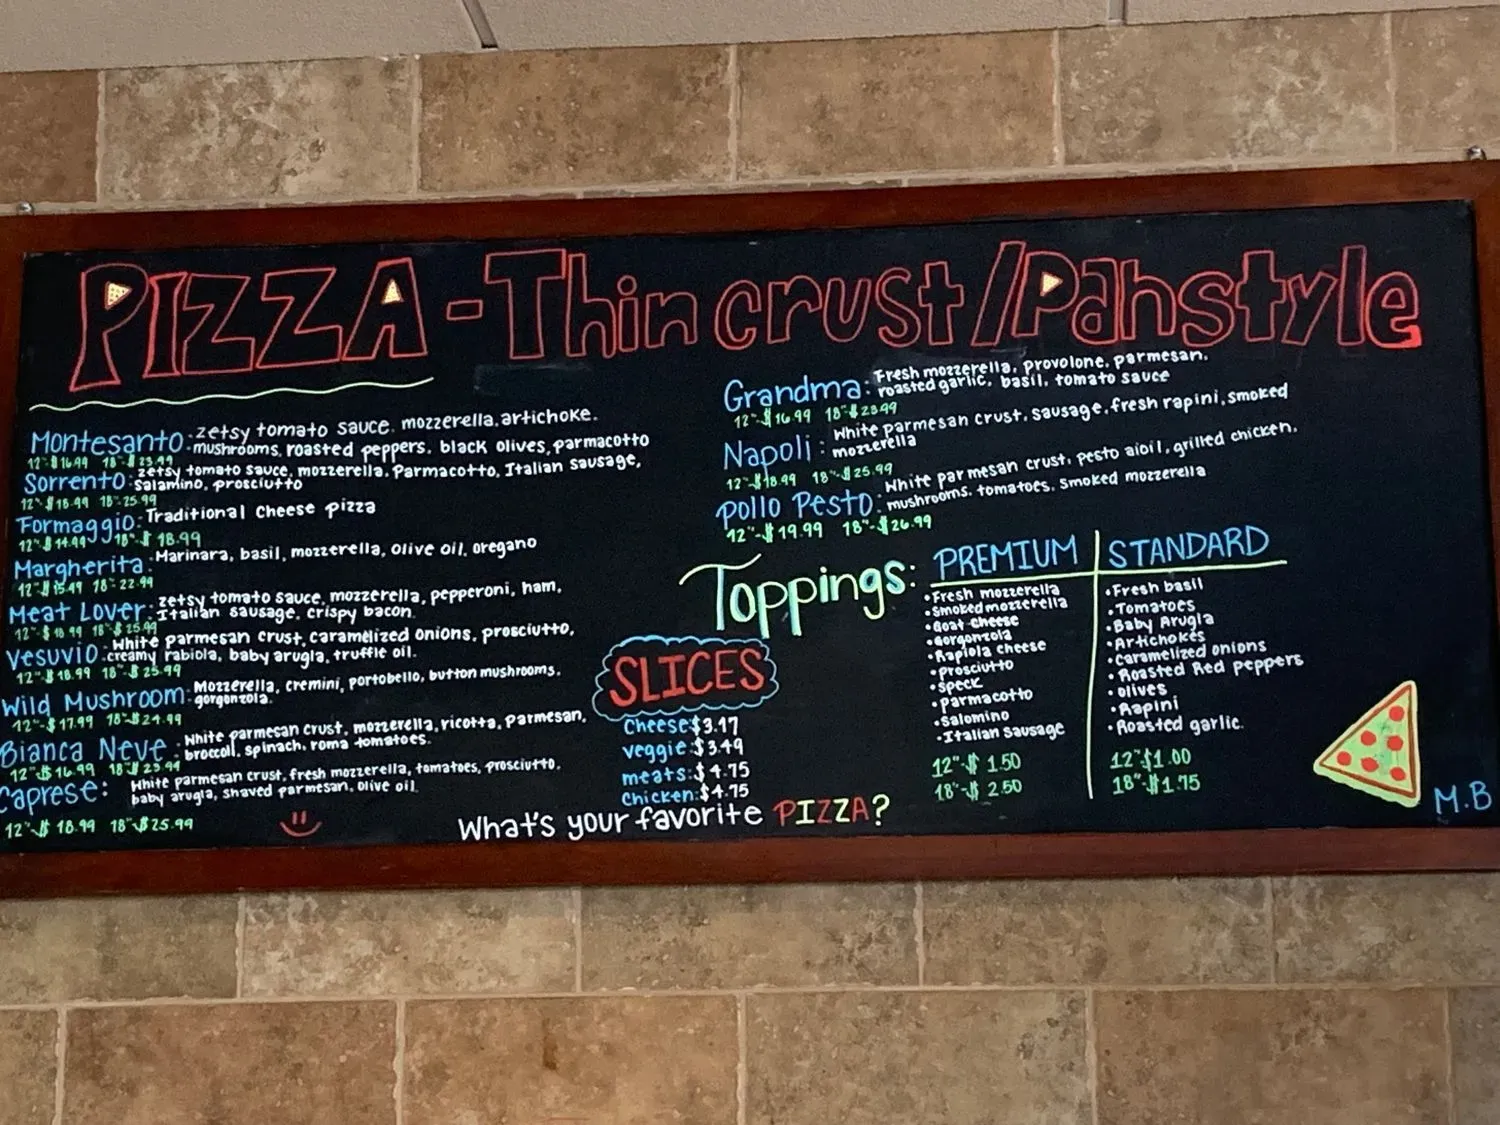 PIZZA - Thin crust / Panstyle
Montesanto: zetsy tomato sauce. mozzerella, artichoke.
mushrooms, roasted peppers. black olives, parmacotto
12"-$16.99 18"-$23.99
Sorrento: zetsy tomato sauce, mozzerella, Parmacotto, Italian sausage,
salamino, prosciutto
12"-$18.99 18"-25.99
Formaggio: Traditional cheese pizza
12"-$14.99 18"-$18.99
Margherita: Marinara, basil, mozzerella, olive oil, oregano
12"-$15.49 18"-22.99
Meat Lover: zetsy tomato sauce, mozzerella, pepperoni, ham,
Italian sausage, crispy bacon.
12"-$18.99 18"-$25.99
Vesuvio: White parmesan crust, caramelized onions, prosciutto,
creamy rabiola, baby arugla, truffle oil.
12"-$18.99 18"-$25.99
Wild Mushroom: Mozzerella, cremini, portobello, button mushrooms.
gorgonzola.
12"-$17.99 18"-$24.99
Bianca Neve: White parmesan crust, mozzerella, ricotta, Parmesan,
broccoli, spinach, roma tomatoes.
12"-$16.99 18"-$23.99
Caprese: White parmesan crust, fresh mozzerella, tomatoes, prosciutto,
baby arugla, shaved parmesan, olive oil
12"-$18.99 18"-$25.99
Grandma: Fresh mozzerella, provolone, parmesan.
roasted garlic, basil, tomato sauce
12"-$16.99 18"-$23.99
Napoli: White parmesan crust, sausage, fresh rapini, smoked
mozzerella
12"-$18.99 18"-$25.99
Pollo Pesto: White parmesan crust, pesto aioil, grilled chicken,
mushrooms, tomatoes, smoked mozzerella
12"-$19.99 18"-$26.99
Toppings:
PREMIUM
• Fresh mozzerella
• Smoked mozzerella
• Goat cheese
• Gorgonzola
• Rapiola cheese
• Prosciutto
• Speck
• parmacotto
• Salomino
• Italian Sausage
12"-$1.50
18"-$2.50
STANDARD
• Fresh basil
• Tomatoes
• Baby Arugla
• Artichokes
• Caramelized onions
• Roasted Red peppers
• olives
• Rapini
• Roasted garlic.
12"-$1.00
18"-$1.75
SLICES
Cheese: $3.17
veggie: $3.49
meats: $4.75
chicken: $4.75
What's your favorite PIZZA?
M.B